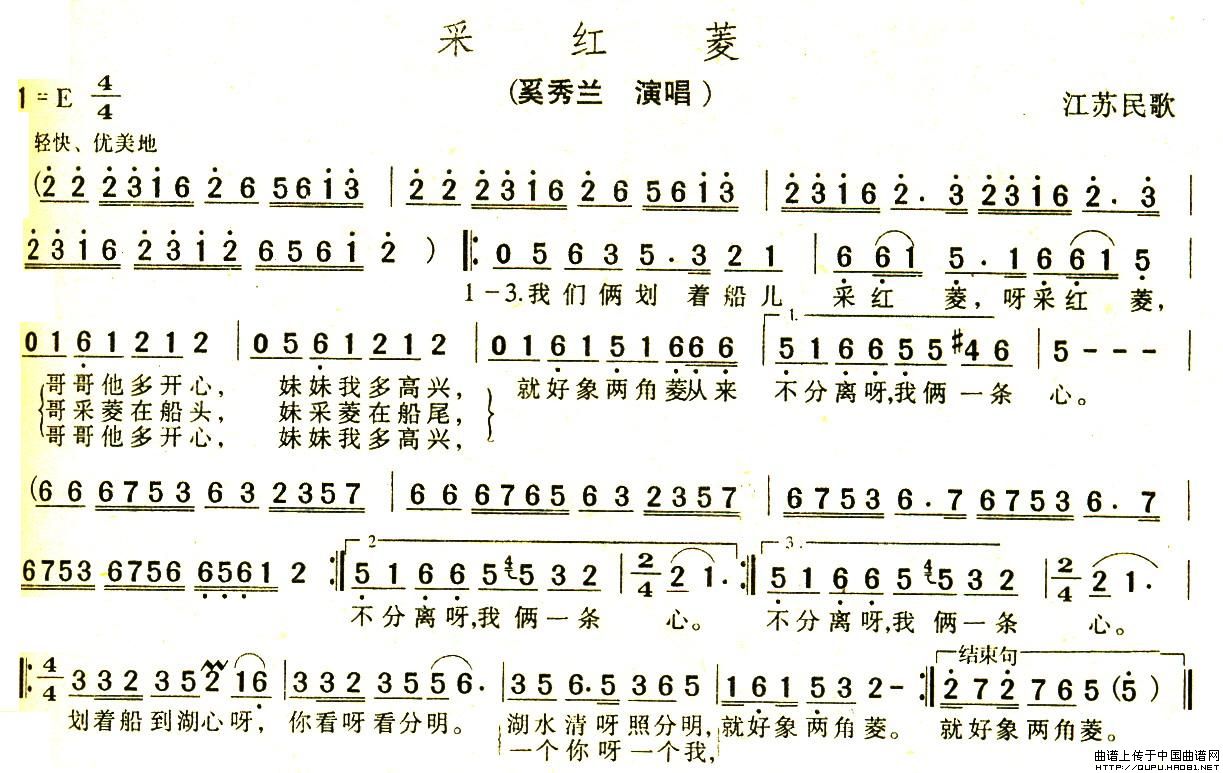 采 红 菱
(奚秀兰 演唱)
1=E 4/4
江苏民歌
轻快、优美地
(2 2 2316 26 5613 | 2 2 2316 26 5613 | 2316 2.3 2316 2.3 |
2316 2312 6561 2 ) |: 05 635.3 21 | 6 61 5.16 61 5
1-3.我们俩划着船儿 采红 菱,呀采红 菱,
01612 12 | 0561212 | 0161 51666 | 1. 516655#46 | 5 - - -
哥哥他多开心, 妹妹我多高兴, 就好象两角菱从来 不分离呀,我俩一条 心。
哥采菱在船头, 妹采菱在船尾,
哥哥他多开心, 妹妹我多高兴,
(66 6753 63 2357 | 66 6765 63 2357 | 6753 6.7 6753 6.7 |
6753 6756 6561 2 :| 2 5166 5 4 532 | 2/4 2 1. :| 3. 5166 5 4 532 | 2/4 2 1. |
不分离呀,我 俩一条 心。 不分离呀,我 俩一条 心。
|: 4/4 332 352 16 | 332 3556. | 356.5 365 | 161532- :| 结束句 272 765 (5) ||
划着船到湖心呀, 你看呀看分明。 湖水清呀照分明, 就好象两角菱。 就好象两角菱。
一个你呀一个我,
曲谱上传于中国曲谱网
HTTP://QUPU.HAO81.NET